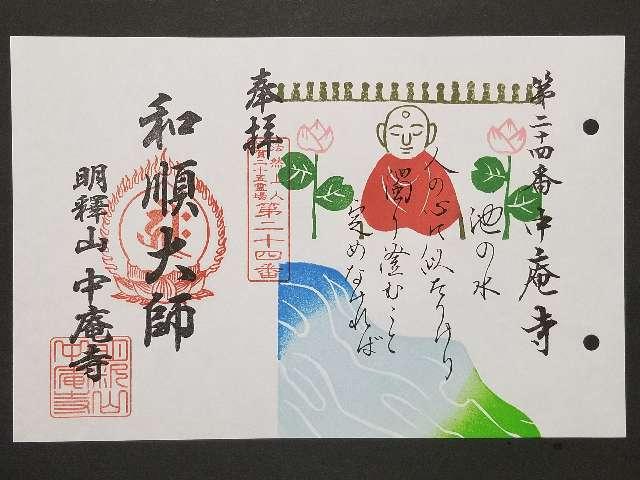 第二十四番 中庵寺
池の水
人の心に似たりけり
濁り澄むこと
定めなければ
奉拝
法然上人
二十五霊場
第二十四番
和順大師
明釋山 中庵寺
明釈山
中庵寺